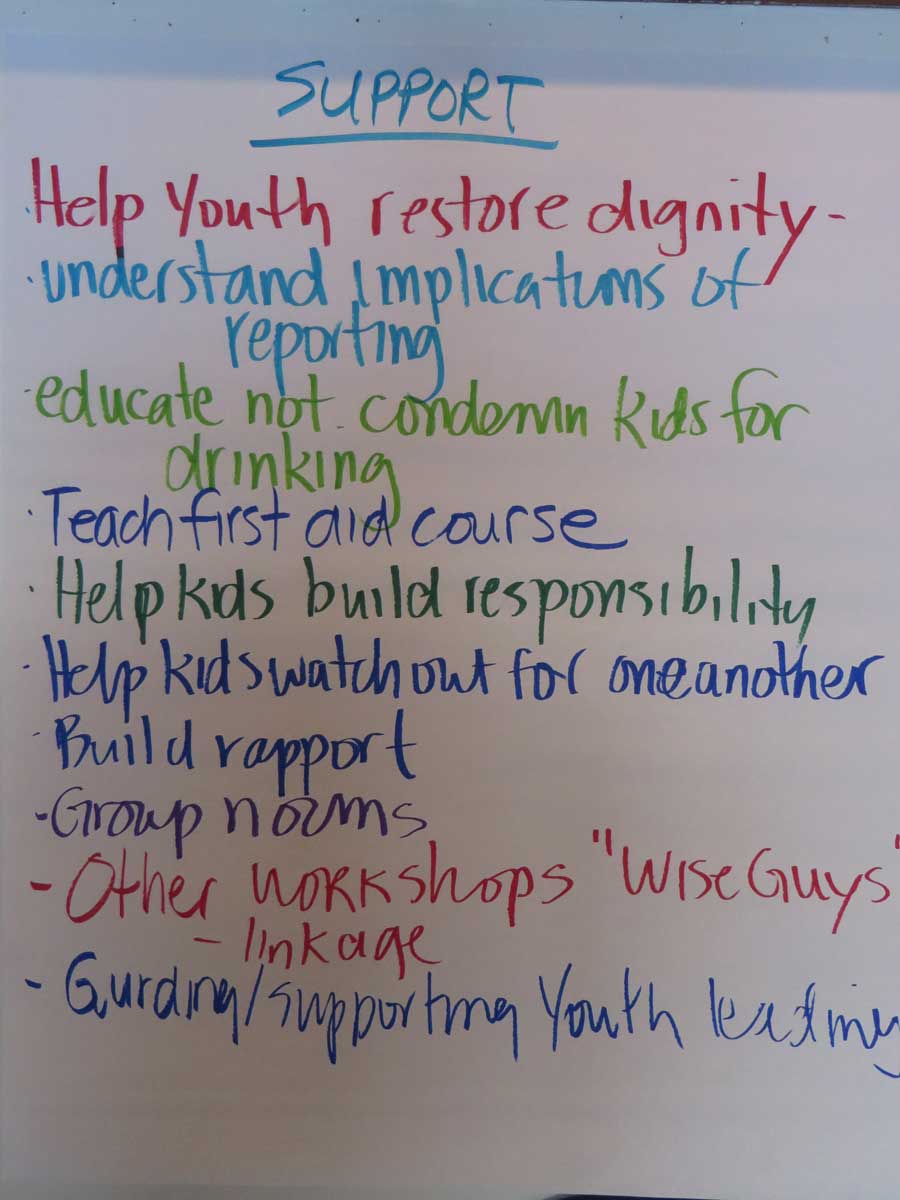 SUPPORT
· Help Youth restore dignity -
· understand implications of
reporting
· educate not condemn kids for
drinking
· Teach first aid course
· Help kids build responsibility
· Help kids watch out for one another
· Build rapport
- Group norms
- Other workshops "Wise Guys"
- linkage
- Guiding/supporting Youth leading